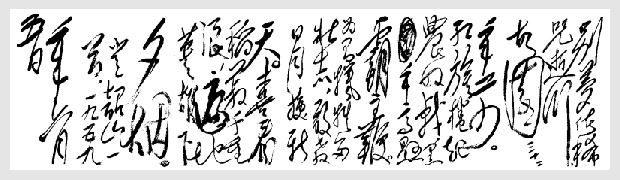 别梦依稀
咒逝川
故园三十二
年前
红旗卷起
农奴戟黑
手高悬
霸主鞭
为有牺牲多
壮志敢教
日月换新
天喜看
稻菽千重
浪遍地
英雄下
夕烟
登韶山一
首一九五九
年六月